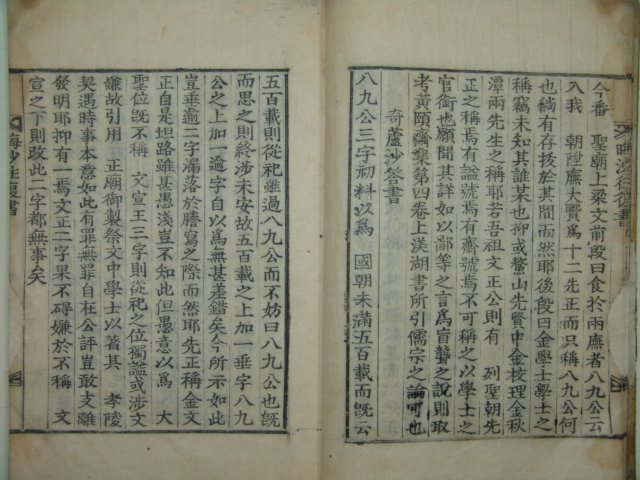 今番 聖廟上梁文前段曰食於兩廡者八九公云
入我 朝陞廡大賢爲十二先正而只稱八九公何
也倘有存拔於其間而然耶後段曰金學士學士之
稱竊未知其誰某也抑或鰲山先賢中金校理金秋
潭兩先生之稱耶若吾祖文正公則有 列聖朝先
正之稱焉有謚號焉有齋號焉不可稱之以學士之
官銜也願聞其詳如以鄙等之言爲盲聾之說則取
考黃頤齋集第四卷上渼湖書所引儒宗之論可也
奇蘆沙答書
八九公三字初料以爲 國朝未滿五百載而旣云
五百載則從祀雖過八九公而不妨曰八九公也旣
而思之則終涉未安故五百載之上加一垂字八九
公之上加一逾字自以爲無甚差錯矣今所示如此
豈垂逾二字漏落於謄寫之際而然耶先正稱金文
正自是坦路雖甚愚淺豈不知此但愚意以爲 大
聖位旣不稱 文宣王三字則從祀之位獨謚或涉文
嫌故引用 正廟御製祭文中學士以著其 孝陵
契遇時事本意如此有罪無罪自在公評豈敢支離
發明耶抑有一焉文正二字果不碍嫌於不稱 文
宣之下則改此二字都無事矣